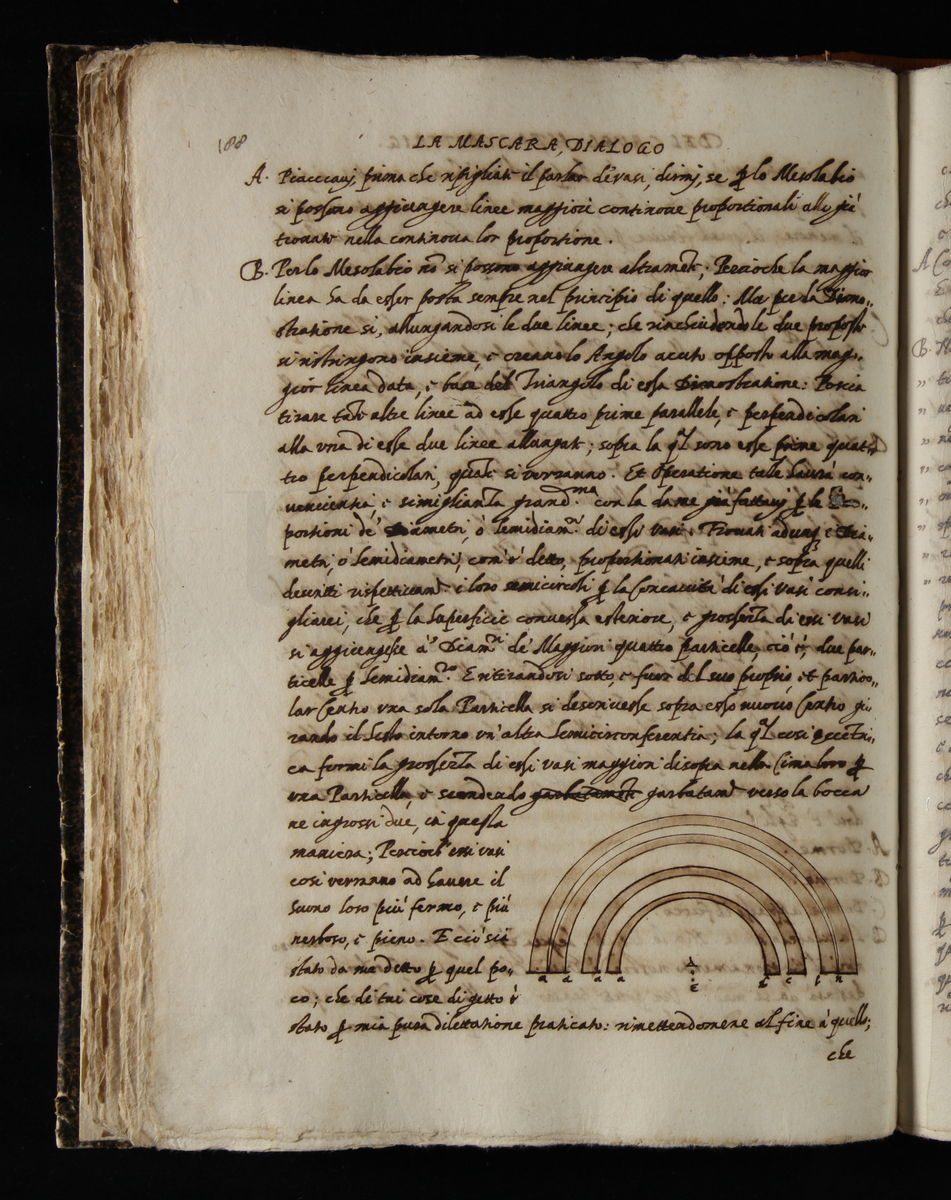 188
LA MASCARA, DIALOGO
A. Piacciavi, prima che ripigliate il parlar de' vasi, dirmi, se p lo Mesolabio
si possono aggiungere linee maggiori continoue proportionali alle già
trovate nella continova lor proportione.
B. Per lo Mesolabio nō si possono aggiungere altramēte; Perciochè la maggior
linea ha da esser posta sempre nel principio di quello: Ma per la Dimo-
stratione si, allungandosi le due linee; che rinchiudendo le due proposte
si ristringono insieme, e creano lo Angolo acuto opposto alla mag-
gior linea data, e base del Triangolo di essa Dimostratione: Poscia
tirare tāte altre linee ad esse quattro prime parallele, e perpendicolari
alla una di esse due linee allungate; sopra la ql sono esse prime quat-
tro perpendicolari, quāte si vorranno. Et Operatione tale haurà con-
venientia, e simiglianza grand.ma con la da me già fattavi p le
portioni de' Diametri, ò Semidiam.ri di essi vasi: Trovati adunq; e Dia-
metri, ò Semidiametri, com'è detto, proportionati insieme, e sopra quelli
descritti rispettivamē. i loro semicircoli p la Concavità di essi vasi consi-
gliarei, che p la Superficie convessa esteriore, e grossezza di essi vasi
si aggiungesse a' Diam.ri de' Maggiori quattro particelle, ciò è, due par-
ticelle p Semidiam.ro E tirandosi sotto, e fuor del suo proprio, et partico-
lar Centro una sola Particella si descrivesse sopra esso nuovo Centro gi-
rando il Sesto intorno un'altra Semicirconferentia; la ql così eccētri-
ca formi la grossezza di essi vasi maggiori di sopra nella Cima loro p
una Particella, e scendendo garbatamē verso la bocca
ne ingrossi due, in questa
maniera; Percioch' essi vasi
così verranno ad havere il
suono loro più fermo, e più
nerboso, e pieno. E ciò sia
stato da me detto p quel po-
co; che di tai cose di getto è
stato p mia pura dilettatione praticato: rimettendomene al fine à quello;
che